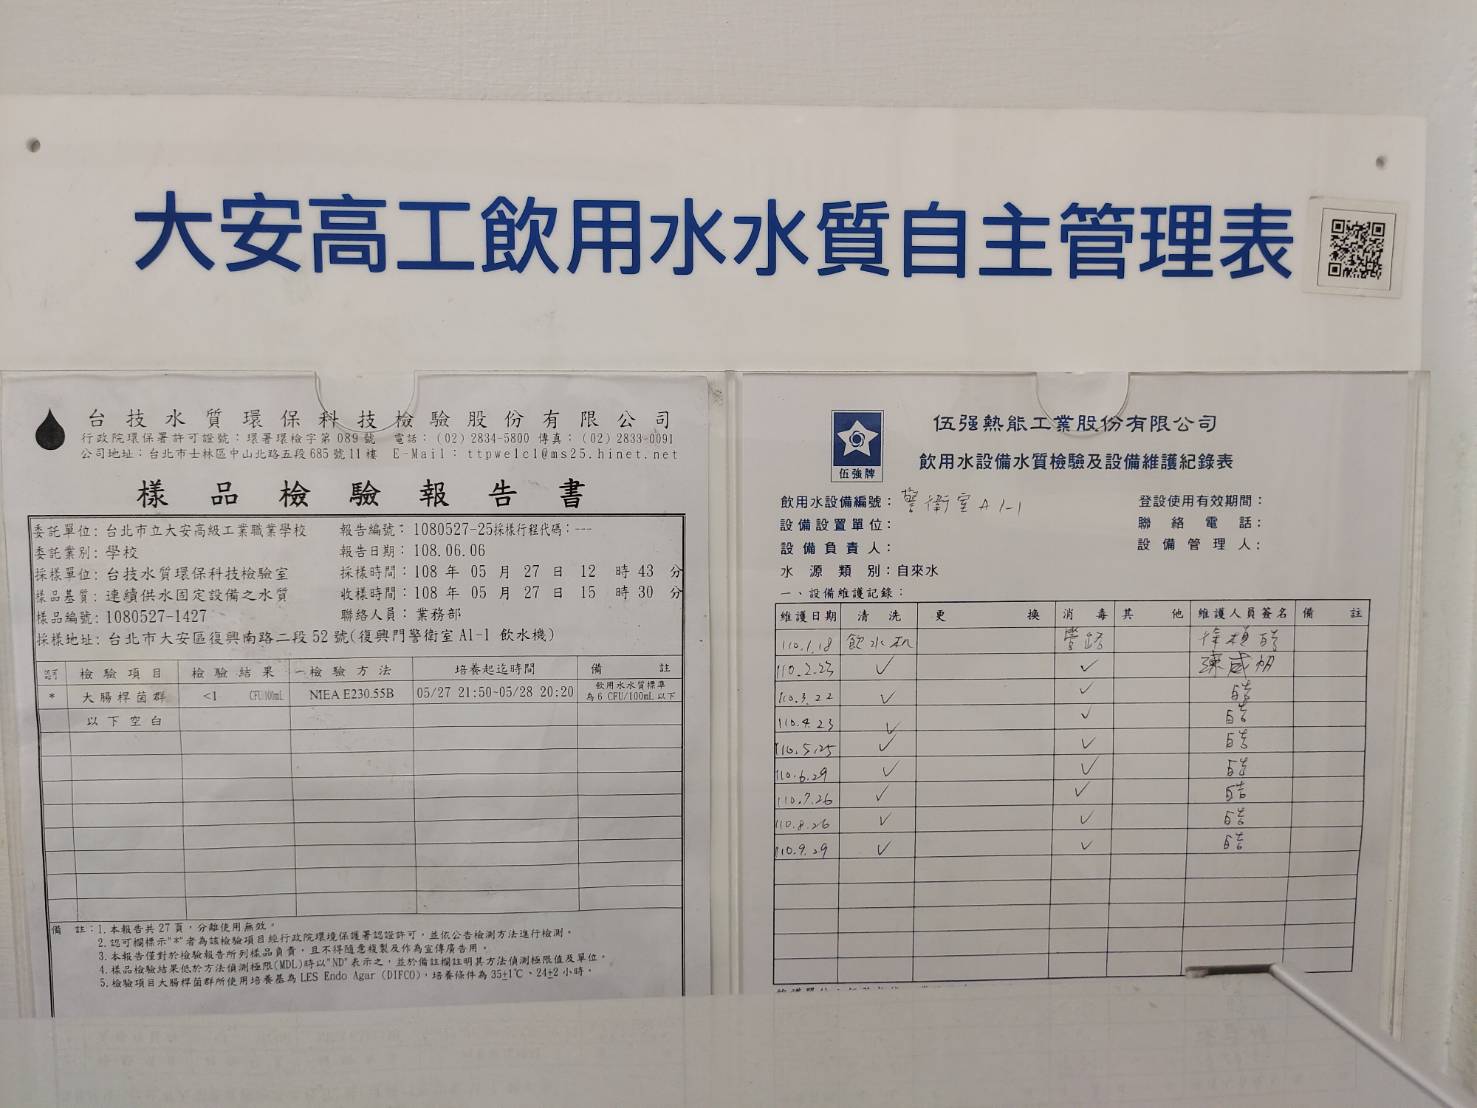 大安高工飲用水水質自主管理表
台技水質環保科技檢驗股份有限公司
行政院環保署許可證號：環署環檢字第089號 電話：(02) 2834-5800 傳真：(02) 2833-0091
公司地址：台北市士林區中山北路五段685號11樓 E-Mail：ttpwelcl@ms25.hinet.net
樣品檢驗報告書
委託單位：台北市立大安高級工業職業學校 報告編號：1080527-25採樣行程代碼：---
委託業別：學校 報告日期：108.06.06
採樣單位：台技水質環保科技檢驗室 採樣時間：108 年 05 月 27 日 12 時 43 分
樣品基質：連續供水固定設備之水質 收樣時間：108 年 05 月 27 日 15 時 30 分
樣品編號：1080527-1427 聯絡人員：業務部
採樣地址：台北市大安區復興南路二段52號(復興門警衛室A1-1 飲水機)
認可 檢驗項目 檢驗結果 檢驗方法 培養起迄時間 備註
* 大腸桿菌群 <1 CFU/100mL NIEA E230.55B 05/27 21:50~05/28 20:20 飲用水水質標準
為6 CFU/100mL以下
以下空白
備註：1.本報告共27頁，分離使用無效。
2.認可欄標示"*"者為該檢驗項目經行政院環境保護署認證許可，並依公告檢測方法進行檢測。
3.本報告僅對於檢驗報告所列樣品負責，且不得隨意複製及作為宣傳廣告用。
4.樣品檢驗結果低於方法偵測極限(MDL)時以"ND"表示之，並於備註欄註明其方法偵測極限值及單位。
5.檢驗項目大腸桿菌群所使用培養基為LES Endo Agar (DIFCO)，培養條件為35±1℃、24±2小時。
伍強牌
伍强熱能工業股份有限公司
飲用水設備水質檢驗及設備維護紀錄表
飲用水設備編號：警衛室A1-1 登設使用有效期間：
設備設置單位： 聯絡電話：
設備負責人： 設備管理人：
水源類別：自來水
一、設備維護記錄：
維護日期 清洗 更換 消毒 其他 維護人員簽名 備註
110.1.18 飲水机 管路
110.2.23 ✓ ✓
110.3.22 ✓ ✓
110.4.23 ✓ ✓
110.5.25 ✓ ✓
110.6.29 ✓ ✓
110.7.26 ✓ ✓
110.8.26 ✓ ✓
110.9.29 ✓ ✓